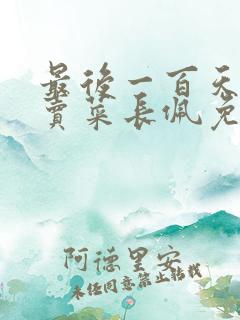 最後一百天
賣菜長佩免
阿德里安
未经同意禁止转载